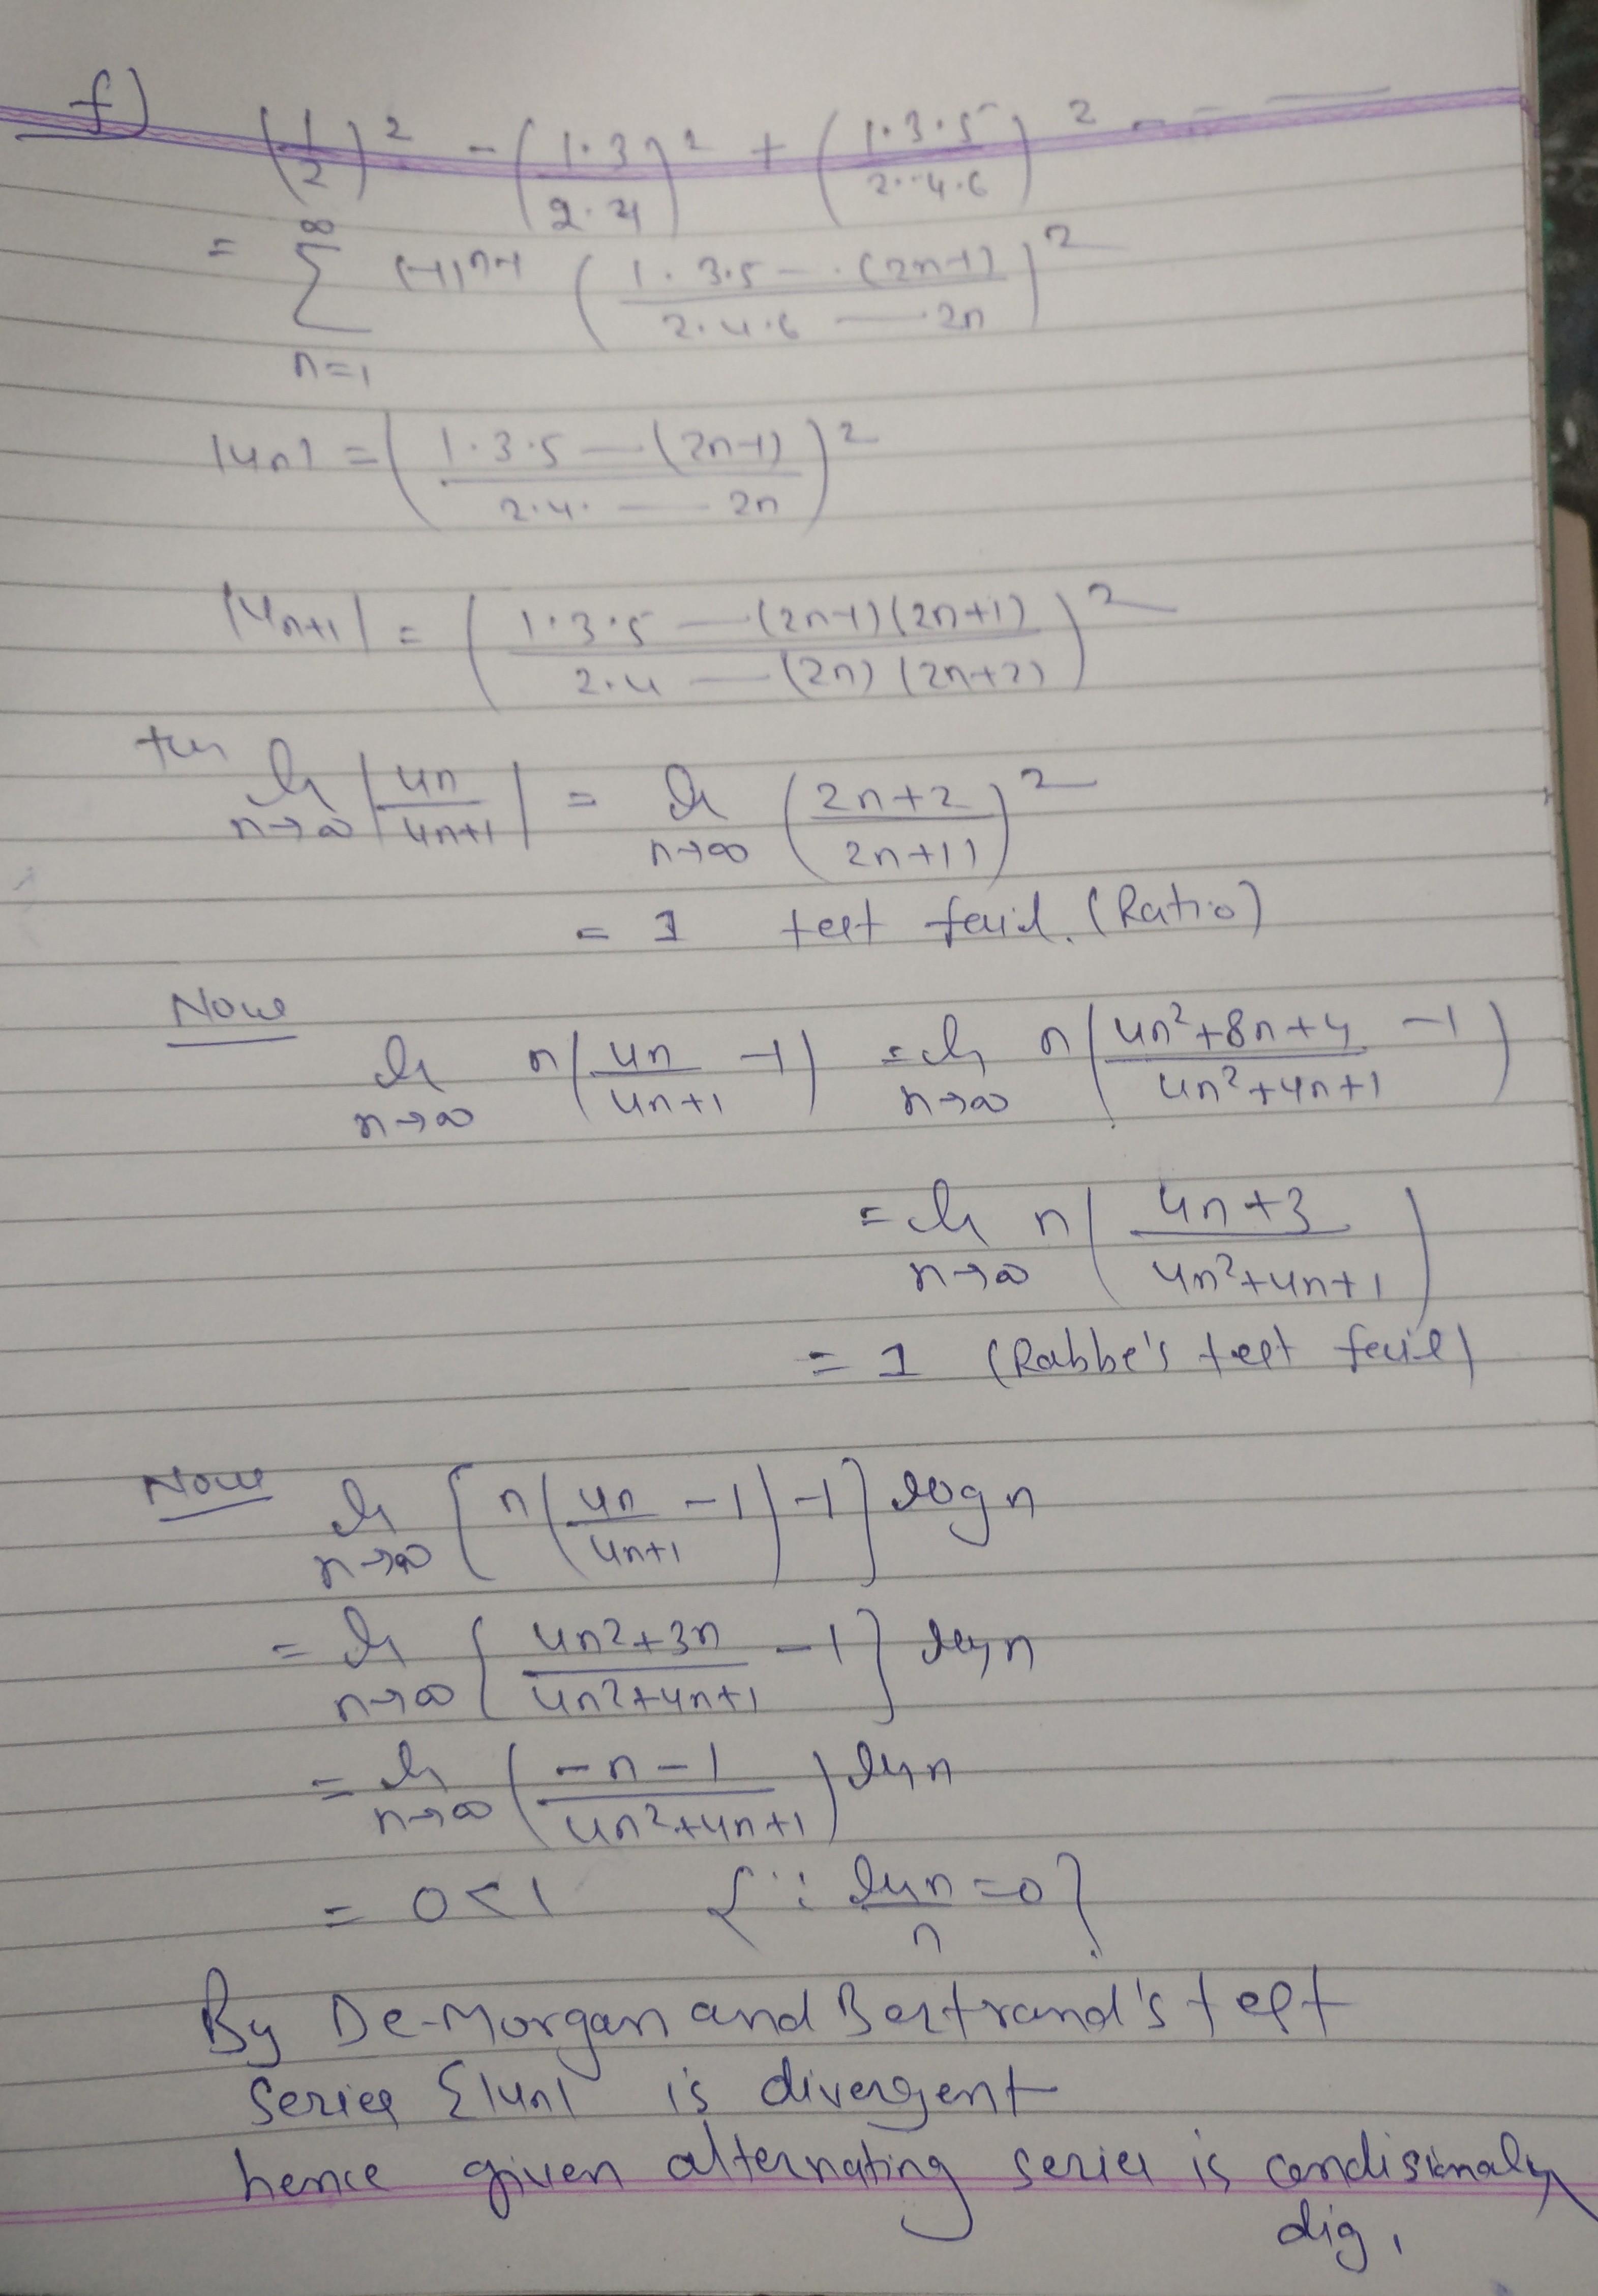 f)
(1/2)² - (1·3/2·4)² + (1·3·5/2·4·6)² - - —
= ∑_{n=1}^{∞} (-1)^{n-1} (1·3·5 -- (2n-1)/2·4·6 — 2n)²
|un| = (1·3·5 — (2n-1)/2·4· — 2n)²
|u_{n+1}| = (1·3·5 — (2n-1)(2n+1)/2·4 — (2n)(2n+2))²
lim_{n→∞} |un/un+1| = lim_{n→∞} (2n+2/2n+1)²
= 1 test faild. (Ratio)
Now
lim_{n→∞} n(un/un+1 - 1) = lim_{n→∞} n(4n²+8n+4/4n²+4n+1 - 1)
= lim_{n→∞} n(4n+3/4n²+4n+1)
= 1 (Rabbe's test faile)
Now lim_{n→∞} [n(un/un+1 - 1) - 1] log n
= lim_{n→∞} [4n²+3n/4n²+4n+1 - 1] log n
= lim_{n→∞} (-n-1/4n²+4n+1) log n
= 0 < 1 {∵ log n/n = 0}
By De-Morgan and Bertrand's test
series Σ|un| is divergent
hence given alternating series is condisionaly
dig.